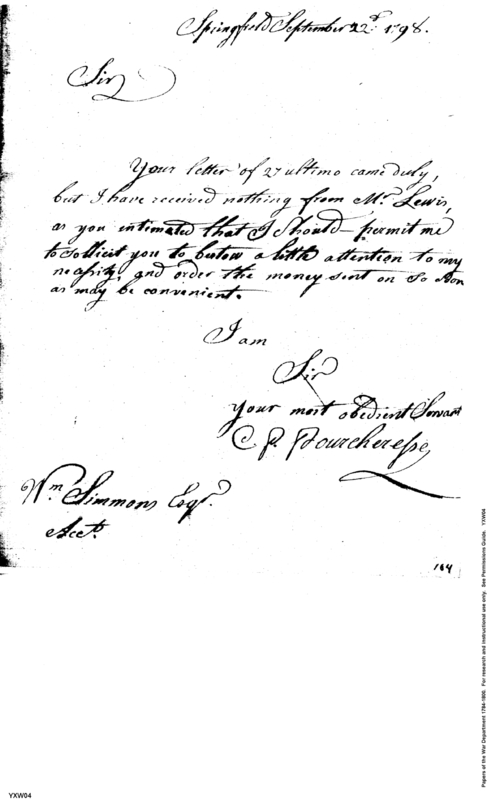 Springfield September 22d. 1798.
Sir
Your letter of 27 ultimo came duly,
but I have received nothing from Mr. Lewis,
as you intimated that I should — permit me
to sollicit you to bestow a little attention to my
necessity, and order the money sent on so soon
as may be convenient.
I am
Sir
your most obedient Servant
Wm. Simmons Esqr.
Acct.
104
YXW04
Papers of the War Department 1784-1800. For research and instructional use only. See Permissions Guide. YXW04